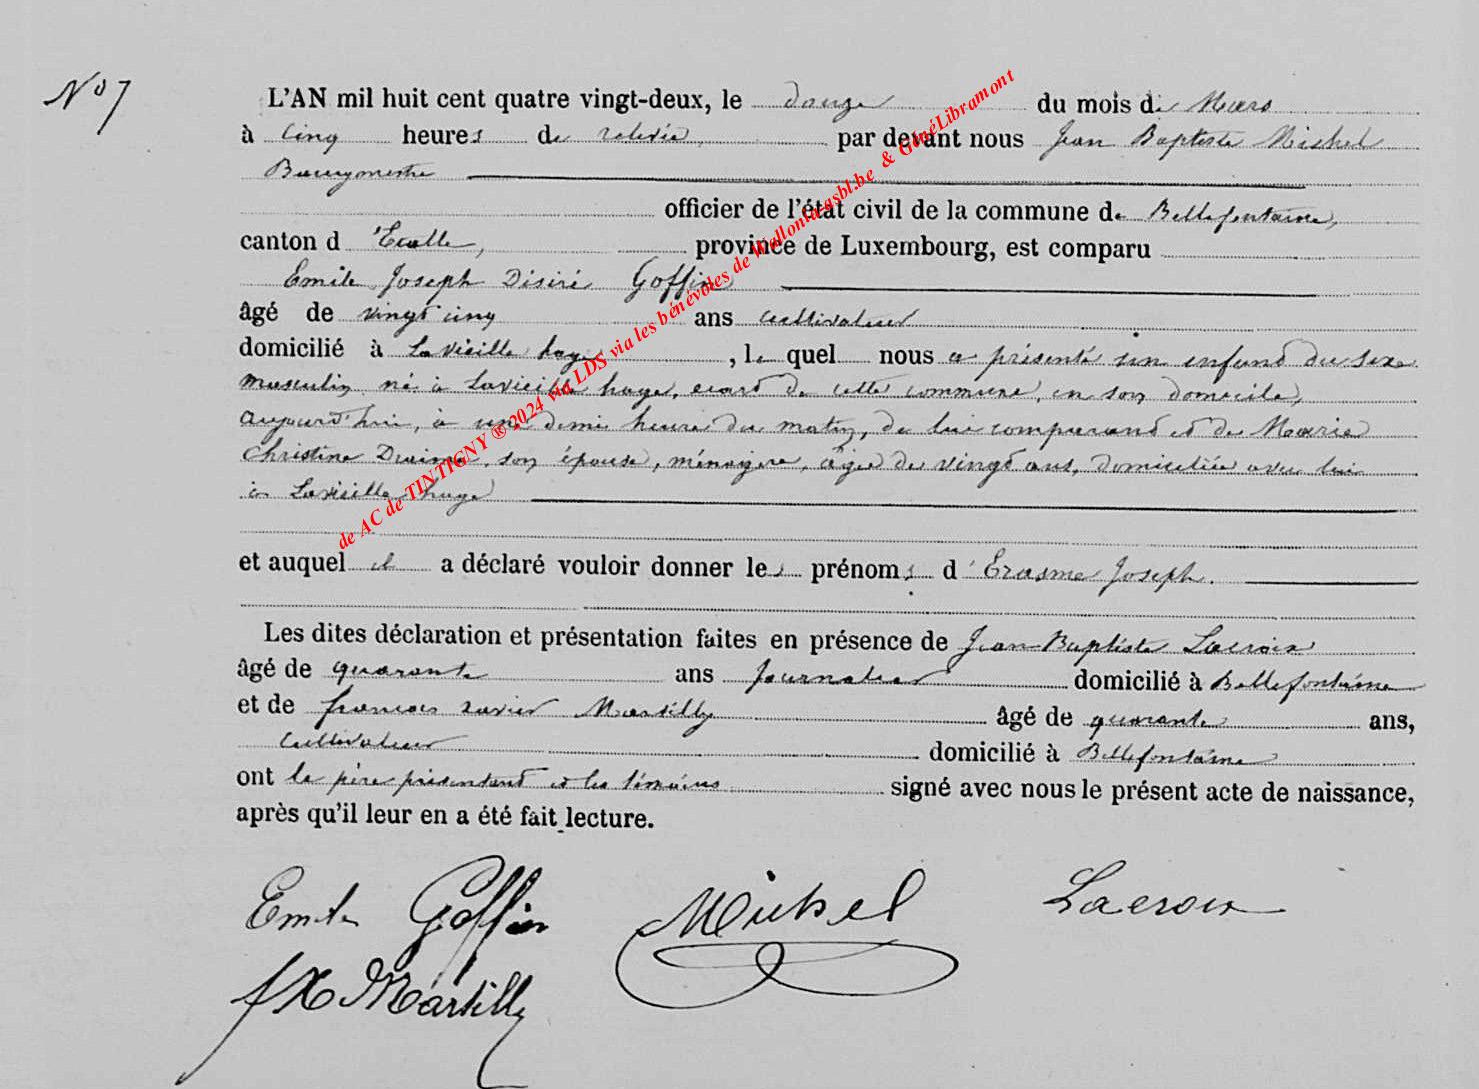 No 7
L'AN mil huit cent quatre vingt-deux, le douze du mois de Mars
à cinq heures de relevée, par devant nous Jean Baptiste Michel
Bourgmestre
officier de l'état civil de la commune de Bellefontaine,
canton d'Etalle, province de Luxembourg, est comparu
Emile Joseph Désiré Goffin
âgé de vingt cinq ans cultivateur
domicilié à Lavieille haye, le quel nous a présenté un enfant du sexe
masculin, né à Lavieille haye, écart de cette commune, en son domicile,
aujourd'hui, à une demi heure du matin, de lui comparant et de Marie
Christine son épouse, ménagère, âgée de vingt ans, domiciliée avec lui
à Lavieille haye
et auquel il a déclaré vouloir donner les prénoms d'Erasme Joseph.
Les dites déclaration et présentation faites en présence de Jean-Baptiste Lacroix
âgé de quarante ans Journalier domicilié à Bellefontaine
et de françois xavier Martilly âgé de quarante ans,
cultivateur domicilié à Bellefontaine
ont le père présentant et les témoins signé avec nous le présent acte de naissance,
après qu'il leur en a été fait lecture.
Emile Goffin Michel Lacroix
fX Martilly
de AC de TINTIGNY ® 2024 via LDS via les bénévoles de Wallonia-asbl.be & GénéLibramont